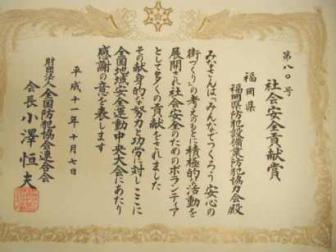 第八〇号
社会安全貢献賞
福岡県
福岡県防犯設備業防犯協力会殿
みなさんは「みんなでつくろう安心の
街づくり」の考えのもとに積極的な活動を
展開され社会安全のためのボランティア
として多くの貢献をされました
その献身的な努力と功労に対しここに
全国地域安全運動中央大会にあたり
感謝の意を表します
平成十一年十月七日
財団法人全国防犯協会連合会
会長小澤恒夫